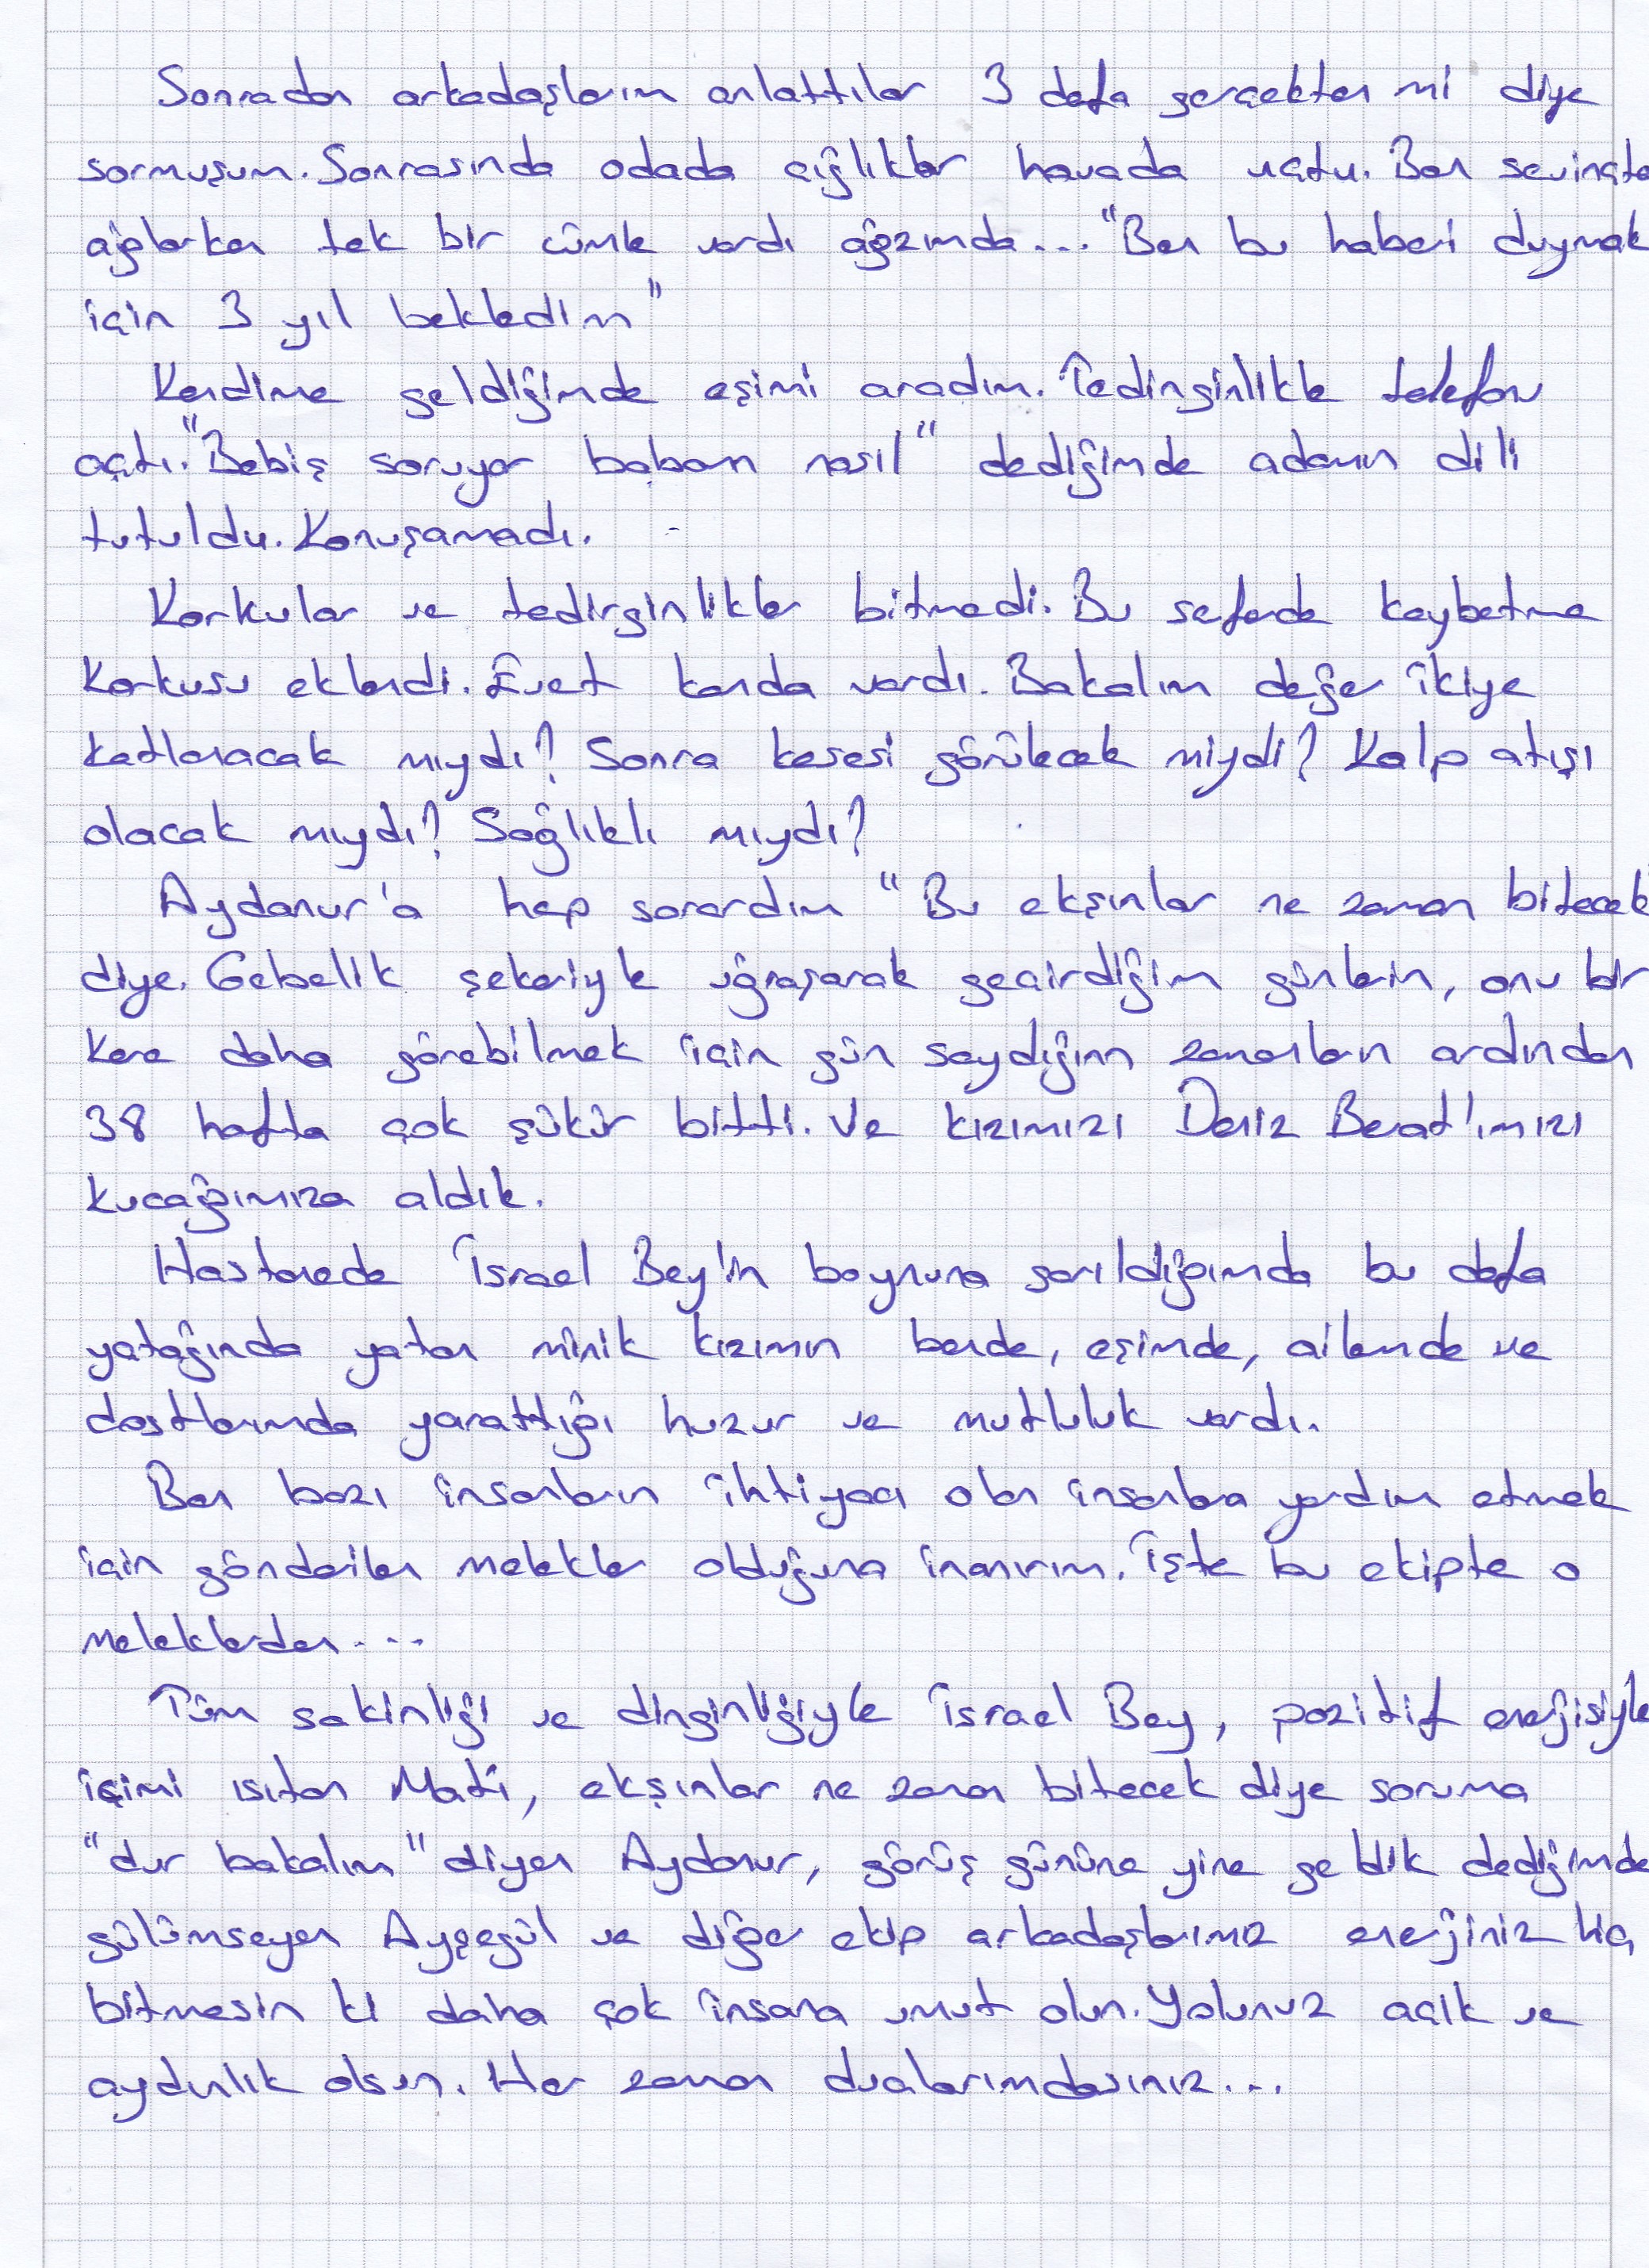 Sonradan arkadaşlarım anlattılar 3 defa gerçekten mi diye
sormuşum. Sonrasında odada çığlıklar havada uçtu. Ben sevinçte
ağlarken tek bir cümle vardı ağzımda... "Ben bu haberi duymak
için 3 yıl bekledim"
Kendime geldiğimde eşimi aradım. Tedirginlikle telefonu
açtı. "Bebiş soruyor babam nasıl" dediğimde adamın dili
tutuldu. Konuşamadı.
Korkular ve tedirginlikler bitmedi. Bu seferde kaybetme
korkusu eklendi. Evet kanda vardı. Bakalım değer ikiye
katlanacak mıydı? Sonra kesesi görülecek miydi? Kalp atışı
olacak mıydı? Sağlıklı mıydı?
Aydanur'a hep sorardım "Bu ekşınlar ne zaman bitecek
diye. Gebelik şekeriyle uğraşarak geçirdiğim günlerin, onu bir
kere daha görebilmek için gün saydığım zamanların ardından
38 hafta çok şükür bitti. Ve kızımızı Deniz Berat'ımızı
kucağımıza aldık.
Hastanede İsrael Bey'in boynuna sarıldığımda bu defa
yatağında yatan minik kızımın bende, eşimde, ailemde ve
dostlarımda yarattığı huzur ve mutluluk vardı.
Ben bazı insanların ihtiyacı olan insanlara yardım etmek
için gönderilen melekler olduğuna inanırım. İşte bu ekipte o
meleklerden....
Tüm sakinliği ve dinginliğiyle İsrael Bey, pozitif enerjisiyle
içimi ısıtan Mati, ekşınlar ne zaman bitecek diye soruma
"dur bakalım" diyen Aydanur, görüş gününe yine geldik dediğimde
gülümseyen Ayşegül ve diğer ekip arkadaşlarımız enerjiniz hiç
bitmesin ki daha çok insana umut olun. Yolunuz açık ve
aydınlık olsun. Her zaman dualarımdasınız...